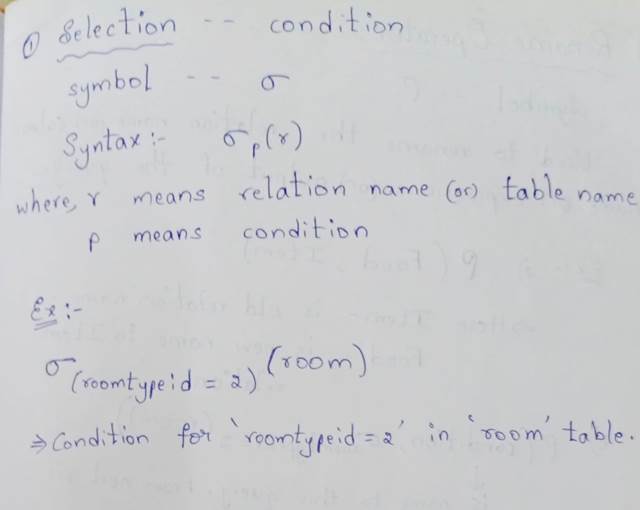 ① Selection -- condition
symbol -- σ
Syntax :- σ p (r)
where, r means relation name (or) table name
p means condition
Ex :-
σ (roomtypeid = 2) (room)
⇒ Condition for 'roomtypeid = 2' in 'room' table.